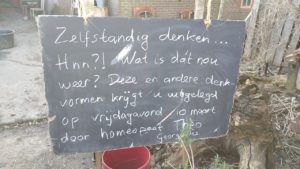 Zelfstandig denken...
Hnn?! Wat is dát nou
weer? Deze en andere denk-
vormen krijgt u uitgelegd
op vrijdagavond 10 maart
door homeopaat Theo